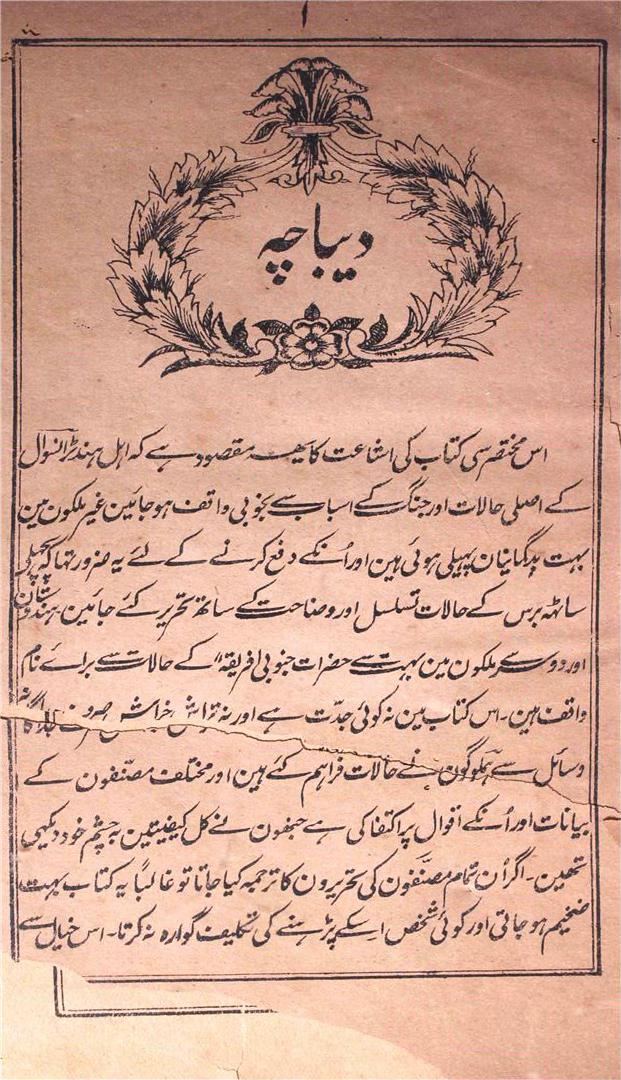 دیباچہ
اس مختصر سی کتاب کی اشاعت کا یہہ مقصود ہے کہ اہل ہند ٹرانسوال
کے اصلی حالات اور جنگ کے اسباب سے بخوبی واقف ہو جائین غیر ملکون مین
بہت بدگمانیان پھیلی ہوئی ہین اور اُنکے دفع کرنے کے لئے یہ ضرور تھا کہ پچھلی
ساٹھہ برس کے حالات تسلسل اور وضاحت کے ساتھ تحریر کئے جائین ہندوستان
اور دوسرے ملکون مین بہت سے حضرات جنوبی افریقہ کے حالات سے برائے نام
واقف ہین۔ اس کتاب مین نہ کوئی جدّت ہے اور نہ تراش خراش صرف جداگانہ
وسائل سے ہملوگون نے حالات فراہم کئے ہین اور مختلف مصنّفون کے
بیانات اور اُنکے اقوال پر اکتفا کی ہے جنھون نے کل کیفیتین بہ چشم خود دیکھی
تھین۔ اگر اُن تمام مصنّفون کی تحریرون کا ترجمہ کیا جاتا تو غالباً یہ کتاب بہت
ضخیم ہو جاتی اور کوئی شخص اسکے پڑہنے کی تکلیف گوارہ نہ کرتا۔ اس خیال سے